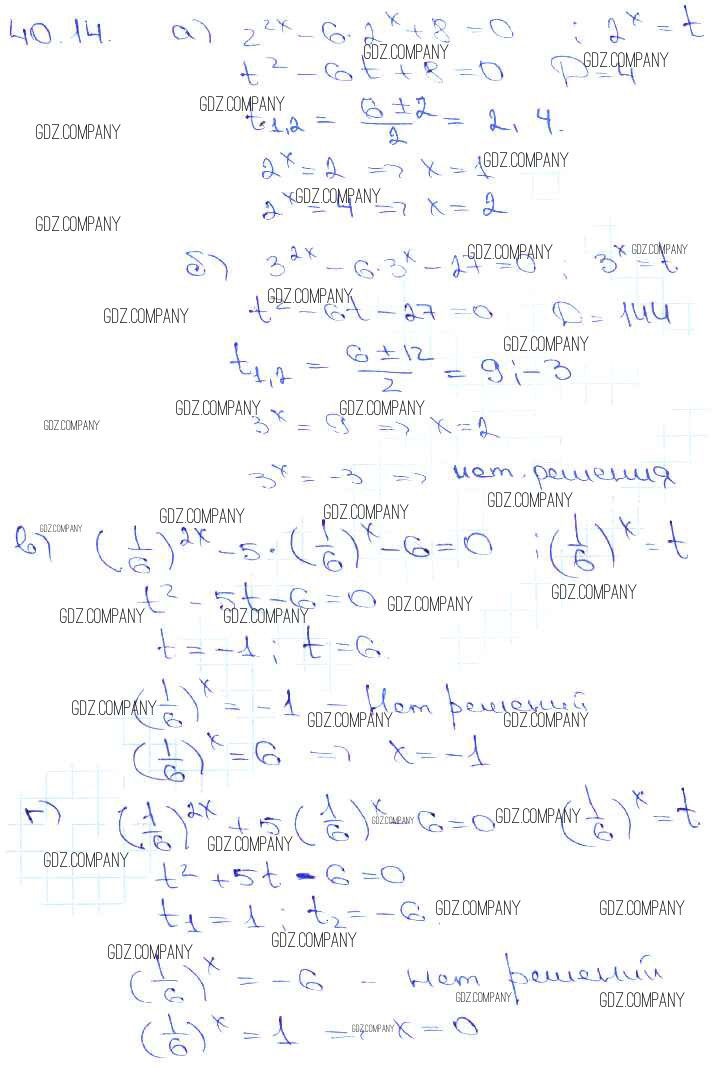 40.14. а) 2^{2x} - 6·2^x + 8 = 0 ; 2^x = t
GDZ.COMPANY GDZ.COMPANY
t² - 6t + 8 = 0 D = 4
GDZ.COMPANY
GDZ.COMPANY t_{1,2} = (6 ± 2)/2 = 2, 4.
2^x = 2 => x = 1 GDZ.COMPANY
GDZ.COMPANY
2^x = 4 => x = 2
GDZ.COMPANY
б) 3^{2x} - 6·3^x - 27 = 0 ; 3^x = t
GDZ.COMPANY GDZ.COMPANY
GDZ.COMPANY
GDZ.COMPANY t² - 6t - 27 = 0 D = 144
GDZ.COMPANY
t_{1,2} = (6 ± 12)/2 = 9 ; -3
GDZ.COMPANY GDZ.COMPANY
GDZ.COMPANY 3^x = 9 => x = 2
3^x = -3 => нет. решения
GDZ.COMPANY
GDZ.COMPANY GDZ.COMPANY GDZ.COMPANY
в) (1/6)^{2x} - 5·(1/6)^x - 6 = 0 ; (1/6)^x = t
GDZ.COMPANY
t² - 5t - 6 = 0 GDZ.COMPANY
GDZ.COMPANY GDZ.COMPANY
t = -1 ; t = 6.
GDZ.COMPANY (1/6)^x = -1 - Нет решений
GDZ.COMPANY GDZ.COMPANY
(1/6)^x = 6 => x = -1
г) (1/6)^{2x} + 5(1/6)^x 6 = 0 (1/6)^x = t
GDZ.COMPANY GDZ.COMPANY
GDZ.COMPANY
GDZ.COMPANY
t² + 5t - 6 = 0
t₁ = 1 ; t₂ = -6. GDZ.COMPANY GDZ.COMPANY
GDZ.COMPANY
GDZ.COMPANY
(1/6)^x = -6 - нет решений
GDZ.COMPANY GDZ.COMPANY
(1/6)^x = 1 => x = 0
GDZ.COMPANY